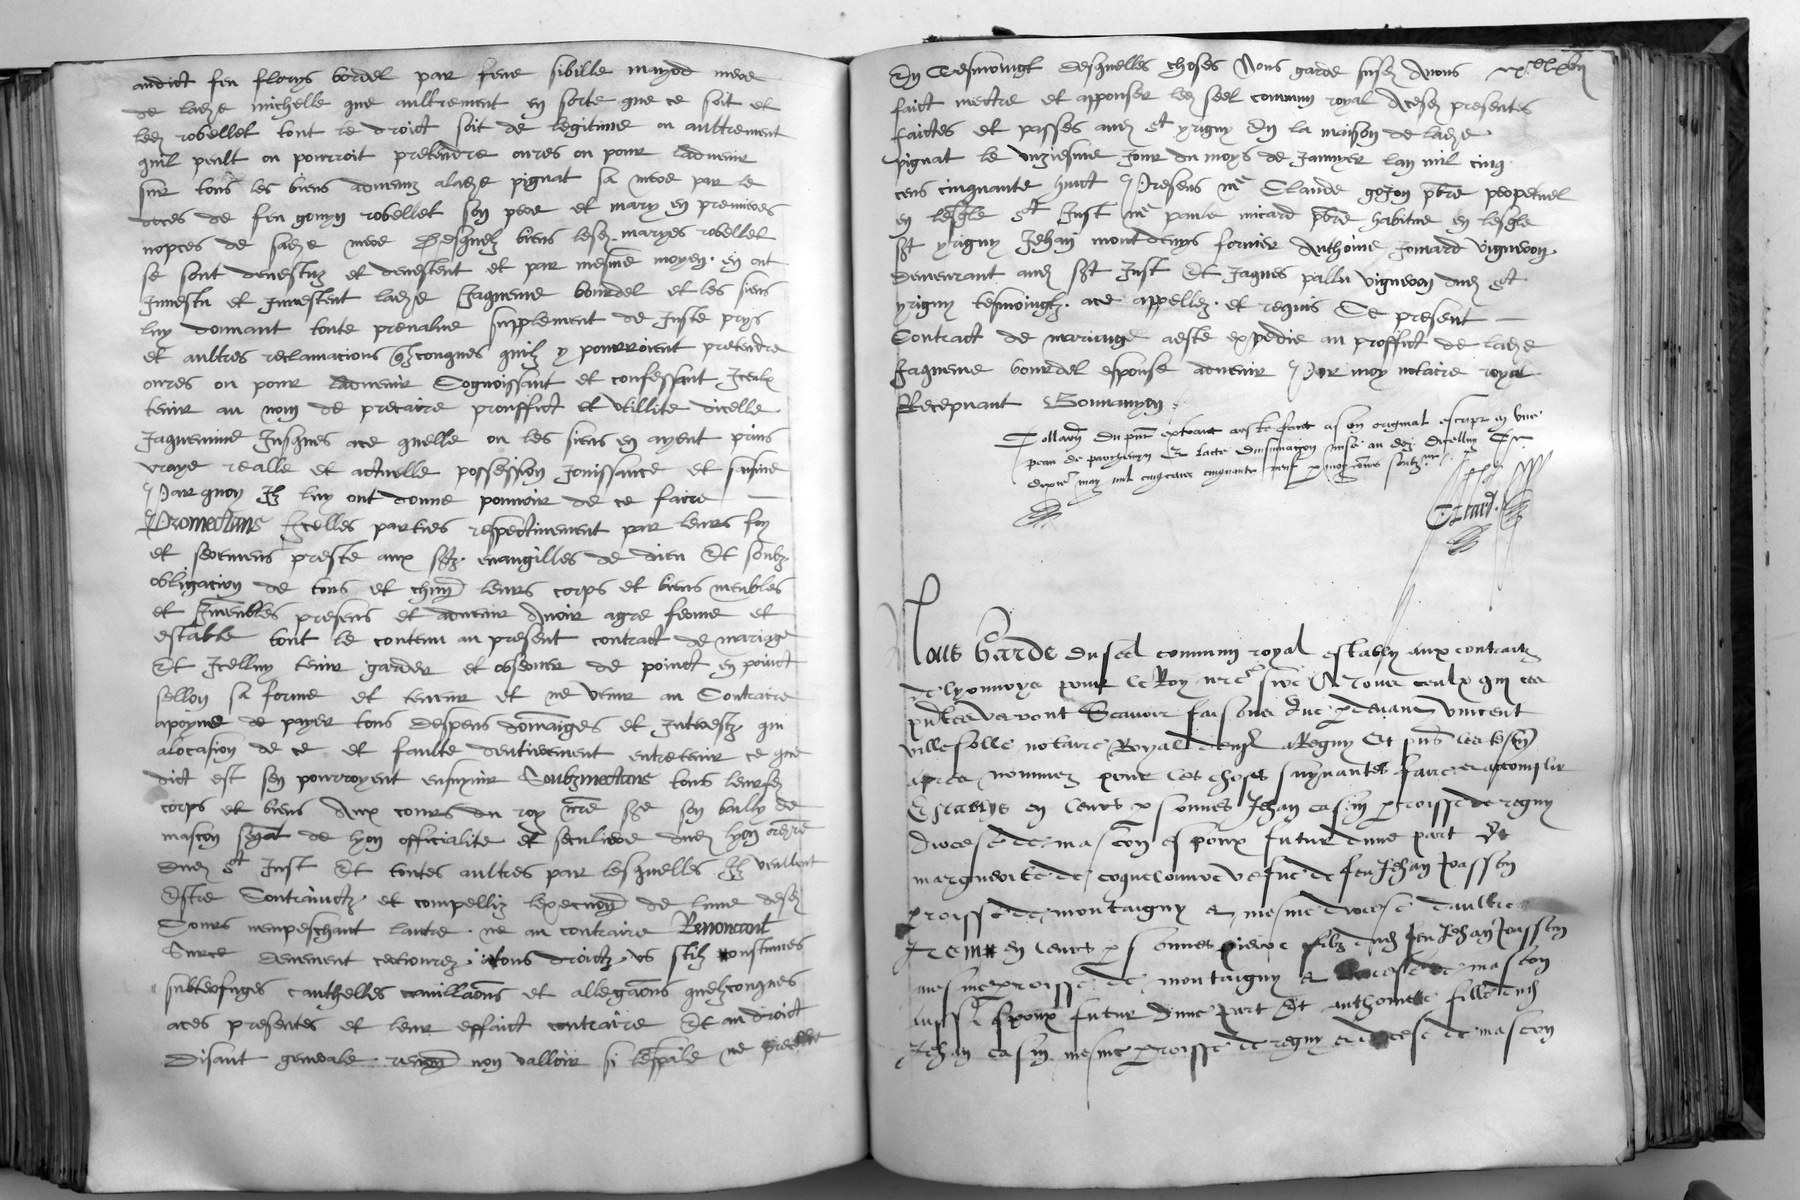 audict feu florys bordel par feue sibille mayod mere
de lad michelle que aultrement en sorte que ce soit et
led robellet tout le droict soit de legitime ou aultrement
quil peult ou pourroit pretendre ores ou pour ladvenir
sur tous les biens advenuz a lade pignat sa mere par le
deces de feu gonyn robellet son pere et mary en premieres
nopces de sade mere Desquelz biens lesd maryes robellet
se sont devestuz et devestent et par mesme moyen en ont
Investu et Investent lade Jaquemine bourdel et les siens
luy donnant toute prevalue supplement de Juste prys
et aultres reclamacions qzconques quilz y pourroient pretendre
ores ou pour ladvenir Cognoissant et confessant Iceulx
tenir au nom de precaire prouffict et utillite dicelle
Jaquemine Jusques ace quelle ou les siens en ayent prins
vraye realle et actuelle possession Jouissance et saisine
Par quoy Ilz luy ont donne pouvoir de ce faire
Promectans Icelles parties respectivement par leurs foy
et sermens preste aux sts evangilles de dieu Et soubz
obligacion de tous et chun leurs corps et biens meubles
et Immeubles presens et advenir Avoir agre ferme et
estable tout le contenu au present contract de mariage
Et Icelluy tenir garder et observer de poinct en poinct
sellon sa forme et teneur et ne venir au Contraire
apoyne de payer tous despens dommaiges et Interestz qui
alocasion de ce et faulte dentierement entretenir ce que
dict est sen pourroyent ensuyvir Soubzmectans tous leursd
corps et biens Aux cours du roy nre sre son bally de
mascon snal de lyon officialite et seculiere dud lyon ordre
dud st Just Et toutes aultres par lesquelles Ilz veullent
Estre Contrainctz et compelliz lexecuon de lune desd
Cours nempeschant lautre ne au contraire Renoncant
Surce deuement cerciorez atous droictz us stilz coustumes
subterfuges cauthelles cavillaons et allegaons quelzconques
aces presentes et leur effaict contraire Et au droict
disant generale renon non valloir si lespale ne precede
En Tesmoingt desquelles choses Nous garde susd Avons
faict mectre et apposer led seel commun royal Acesd presentes
faictes et passes aud st yrigny En la maison de lade
pignat le unziesme Jour du moys de Janvyer lan mil cinq
cens cinquante huict Presens me Claude gojon pbre perpetuel
en lesgle st Just me paule micard pbre habitue en lesgle
st yrigny Jehan montdenys fornier Anthoine Jomard vigneron
demeurant aud st Just Et Jaques pallu vigneron dud st
yrigny tesmoingtz ace appellez et requis Ce present
Contract de mariage aeste expedie au proffict de lade
Jaqueme bourdel espouse advenir Par moy notaire royal
Recepvant Bonnanyon
Collaon du pnt extraict aeste faict a son original escript en une
peau de parchemyn et lacte dinsinuation mise au doz dicelluy Ce
dixe may mil cinq cens cinquante neuf p moy comis soubzne
Nous Garde du seel commun royal estably aux contraictz
de lyonnoys pour le Roy nre sire A Tous ceulx qui ces
pntes verront Scavoir faisons que pdevant vincent
villesolle notaire Royal demt a Regny Et pns les tesm
apres nommez pour les choses suyvantes faire et accomplir
Establys en leurs psonnes Jehan casin proisse de regny
diocese de mascon espoux futur dune part Et
marguerite de coquelourde vefve de feu Jehan Jasson
proisse de montaigny et mesme diocese daultre
Item en leurs psonnes pierre filz dud feu Jehan Jasson
mesme proisse de montaigny et diocese de mascon
aussi Espoux futur dune part Et anthoinette fille dud
Jehan casin mesme proisse de regny et diocese de mascon